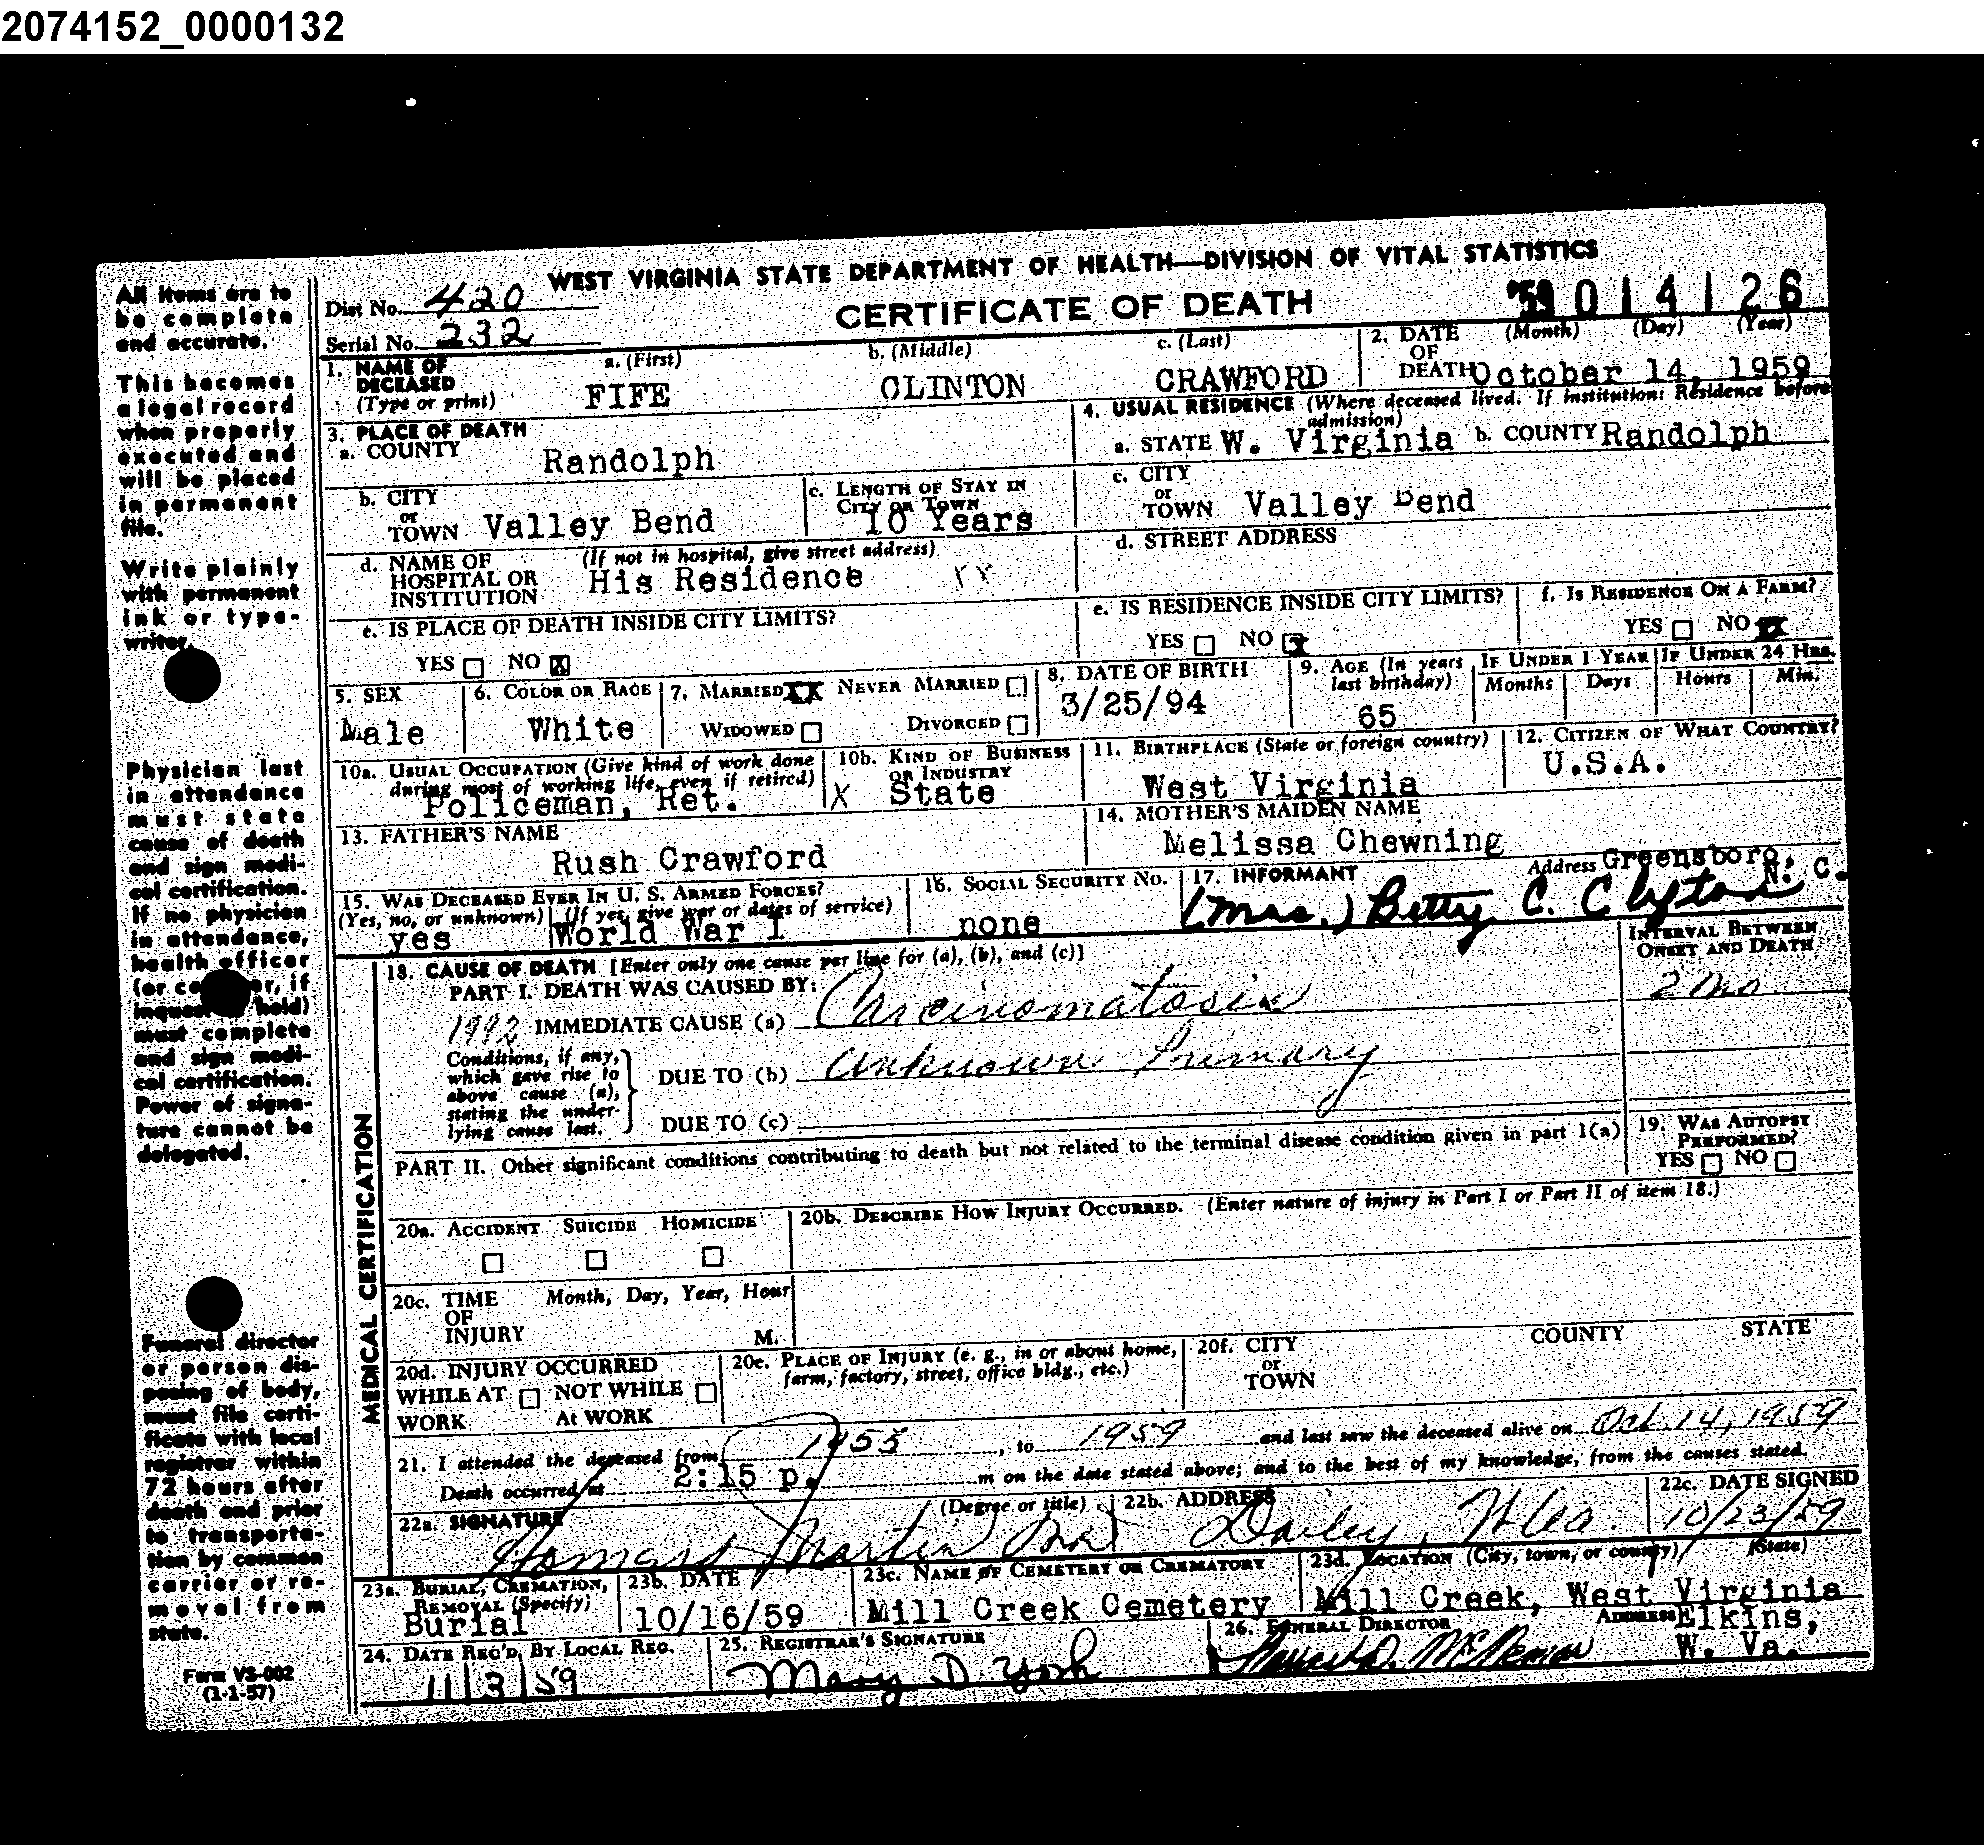 2074152_0000132
WEST VIRGINIA STATE DEPARTMENT OF HEALTH—DIVISION OF VITAL STATISTICS
Dist No. 420
CERTIFICATE OF DEATH
014126
Serial No. 232
1. NAME OF DECEASED (Type or print)
a. (First) FIFE
b. (Middle) CLINTON
c. (Last) CRAWFORD
2. DATE OF DEATH (Month) (Day) (Year) October 14, 1959
3. PLACE OF DEATH
a. COUNTY Randolph
4. USUAL RESIDENCE (Where deceased lived. If institution: Residence before admission)
a. STATE W. Virginia b. COUNTY Randolph
b. CITY or TOWN Valley Bend
c. LENGTH OF STAY IN CITY OR TOWN 10 Years
c. CITY or TOWN Valley Bend
d. NAME OF HOSPITAL OR INSTITUTION (If not in hospital, give street address) His Residence
d. STREET ADDRESS
e. IS PLACE OF DEATH INSIDE CITY LIMITS?
YES NO X
e. IS RESIDENCE INSIDE CITY LIMITS?
YES NO X
f. IS RESIDENCE ON A FARM?
YES NO XX
5. SEX Male
6. COLOR OR RACE White
7. MARRIED XX NEVER MARRIED
WIDOWED DIVORCED
8. DATE OF BIRTH 3/25/94
9. AGE (In years last birthday) 65
IF UNDER 1 YEAR Months Days
IF UNDER 24 HRS. Hours Min.
10a. USUAL OCCUPATION (Give kind of work done during most of working life, even if retired) Policeman, Ret.
10b. KIND OF BUSINESS OR INDUSTRY X State
11. BIRTHPLACE (State or foreign country) West Virginia
12. CITIZEN OF WHAT COUNTRY? U.S.A.
13. FATHER'S NAME Rush Crawford
14. MOTHER'S MAIDEN NAME Melissa Chewning
15. WAS DECEASED EVER IN U. S. ARMED FORCES?
(Yes, no, or unknown) yes
(If yes, give war or dates of service) World War 1
16. SOCIAL SECURITY NO. none
17. INFORMANT (Mrs.) Betty C. Clayton
Address Greensboro, N. C.
MEDICAL CERTIFICATION
18. CAUSE OF DEATH [Enter only one cause per line for (a), (b), and (c)]
INTERVAL BETWEEN ONSET AND DEATH
PART I. DEATH WAS CAUSED BY:
1992 IMMEDIATE CAUSE (a) Carcinomatosis 2 mo
Conditions, if any, which gave rise to above cause (a), stating the underlying cause last.
DUE TO (b) Unknown Primary
DUE TO (c)
PART II. Other significant conditions contributing to death but not related to the terminal disease condition given in part I(a)
19. WAS AUTOPSY PERFORMED?
YES NO
20a. ACCIDENT SUICIDE HOMICIDE
20b. DESCRIBE HOW INJURY OCCURRED. (Enter nature of injury in Part I or Part II of item 18.)
20c. TIME OF INJURY Month, Day, Year, Hour M.
20d. INJURY OCCURRED
WHILE AT WORK NOT WHILE At WORK
20e. PLACE OF INJURY (e. g., in or about home, farm, factory, street, office bldg., etc.)
20f. CITY or TOWN COUNTY STATE
21. I attended the deceased from 1955, to 1959 and last saw the deceased alive on Oct 14, 1959
Death occurred at 2:15 p. m on the date stated above; and to the best of my knowledge, from the causes stated.
22a. SIGNATURE (Degree or title) Martin
22b. ADDRESS Dailey, W Va.
22c. DATE SIGNED 10/23/59
23a. BURIAL, CREMATION, REMOVAL (Specify) Burial
23b. DATE 10/16/59
23c. NAME OF CEMETERY OR CREMATORY Mill Creek Cemetery
23d. LOCATION (City, town, or county) (State) Mill Creek, West Virginia
24. DATE REC'D. BY LOCAL REG. 11/3/59
25. REGISTRAR'S SIGNATURE Mary D York
26. FUNERAL DIRECTOR
ADDRESS Elkins, W. Va.
All items are to
be complete
and accurate.
This becomes
a legal record
when properly
executed and
will be placed
in permanent
file.
Write plainly
with permanent
ink or type-
writer.
Physician last
in attendance
must state
cause of death
and sign medi-
cal certification.
If no physician
in attendance,
health officer
(or r, if
inquest held)
must complete
and sign medi-
cal certification.
Power of signa-
ture cannot be
delegated.
Funeral director
or person dis-
posing of body,
must file certi-
ficate with local
registrar within
72 hours after
death and prior
to transporta-
tion by common
carrier or re-
moval from
state.
Form VS-002
(1-1-57)